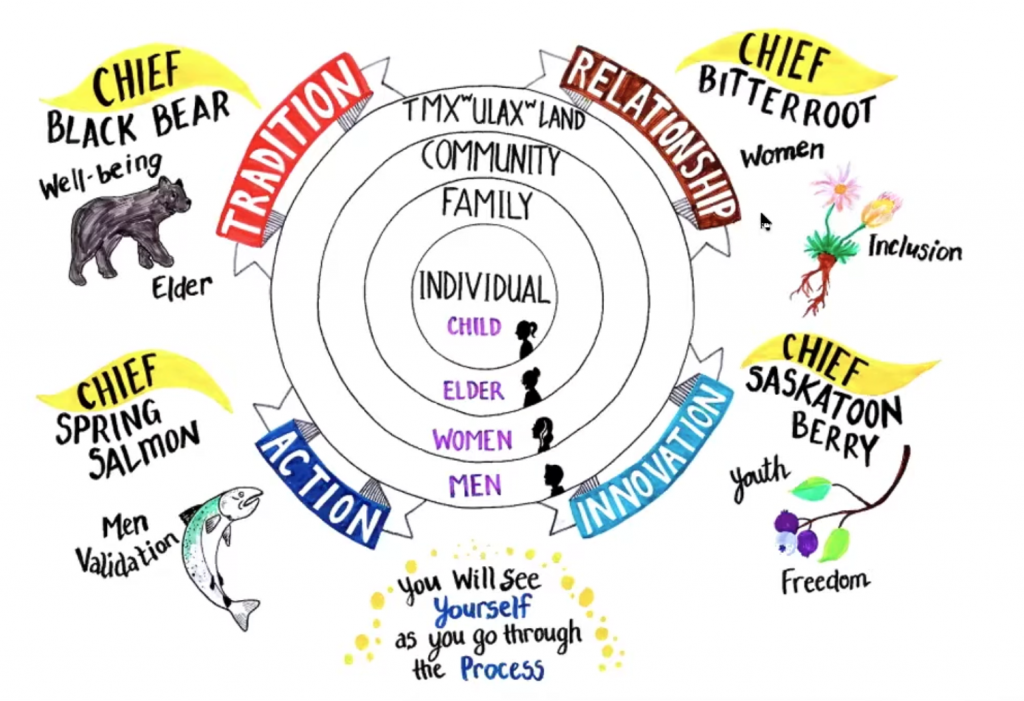 CHIEF
BLACK BEAR
Well-being
Elder
TRADITION
RELATIONSHIP
CHIEF
BITTERROOT
Women
Inclusion
TMXʷʷULAXʷ LAND
COMMUNITY
FAMILY
INDIVIDUAL
CHILD
ELDER
WOMEN
MEN
CHIEF
SPRING
SALMON
Men
Validation
ACTION
INNOVATION
CHIEF
SASKATOON
BERRY
Youth
Freedom
you Will See
Yourself
as you go through
the Process